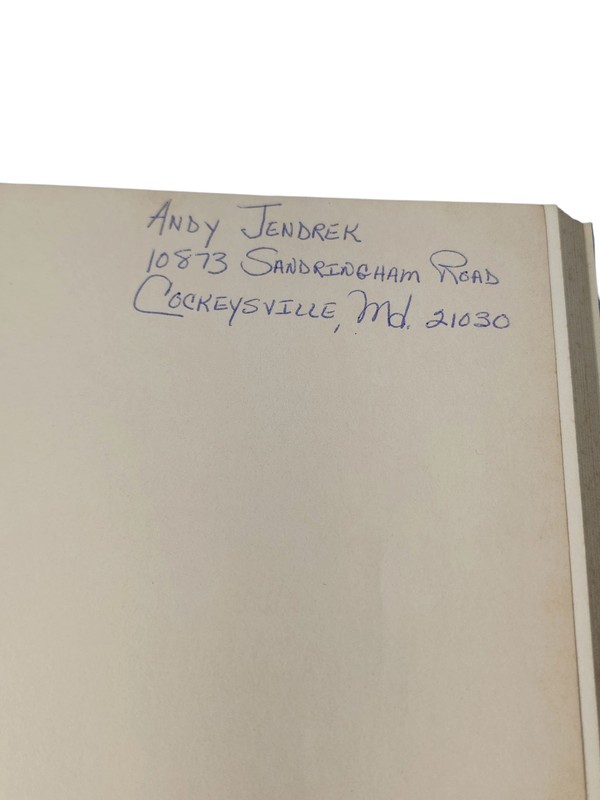 Andy Jendrek
10873 Sandringham Road
Cockeysville, Md. 21030